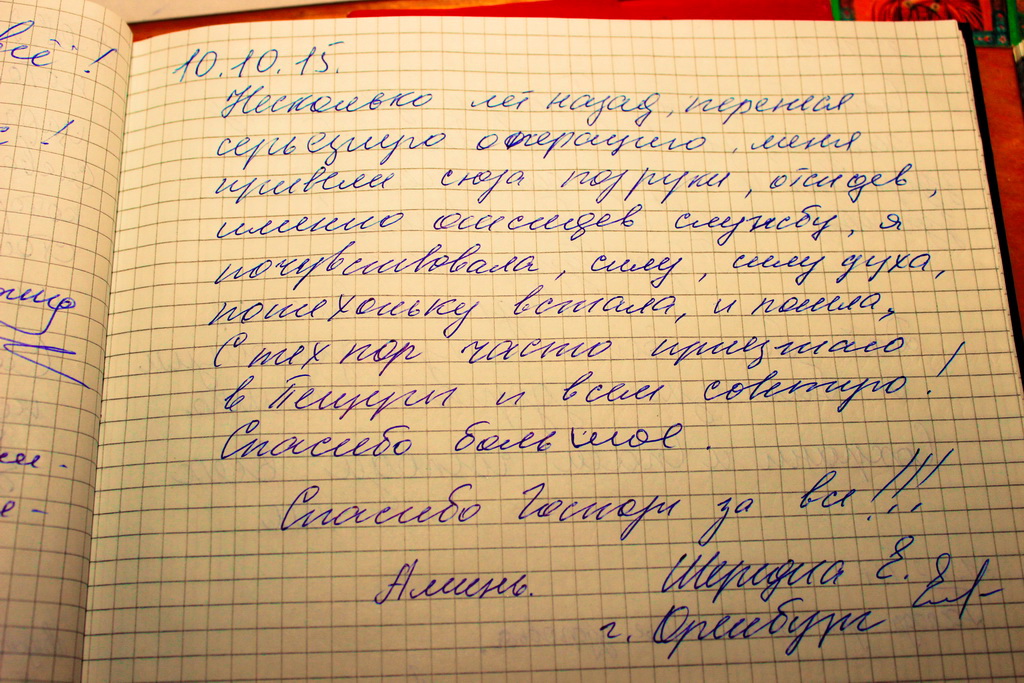 всё!
10.10.15.
Несколько лет назад, перенеся
серьезную операцию, меня
привели сюда под руки, отсидев,
именно отсидев службу, я
почувствовала, силу, силу духа,
потихоньку встала, и пошла,
С тех пор часто приезжаю
в Пещеры и всем советую!
Спасибо большое.
Спасибо Господи за все!!!
Аминь.
Е.
г. Оренбург